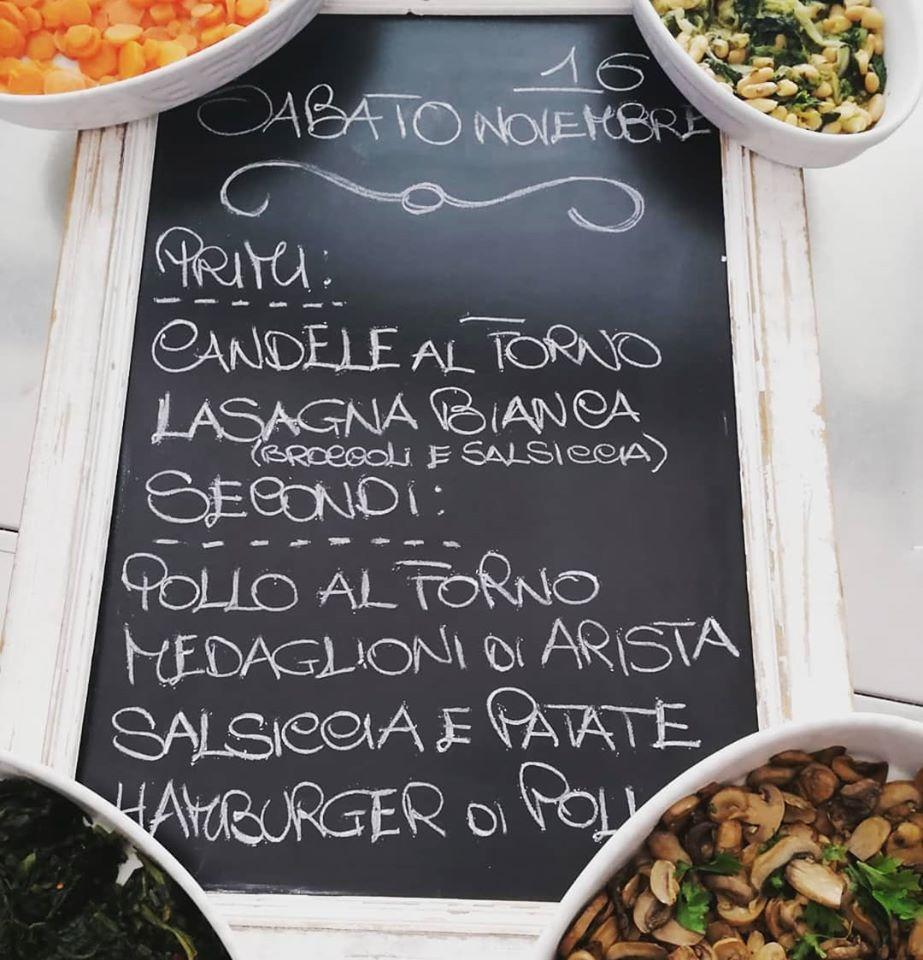 16
SABATO NOVEMBRE
PRIMI:
CANDELE AL FORNO
LASAGNA BIANCA
(BROCCOLI E SALSICCIA)
SECONDI:
POLLO AL FORNO
MEDAGLIONI DI ARISTA
SALSICCIA E PATATE
HAMBURGER DI POLL